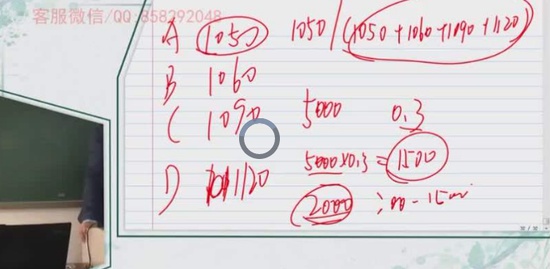 客服微信/QQ:858292048
A 1050 1050/(1050+1060+1090+1120)
B 1060
C 1090 5000 0.3
D 1120 5000×0.3=1500
2000